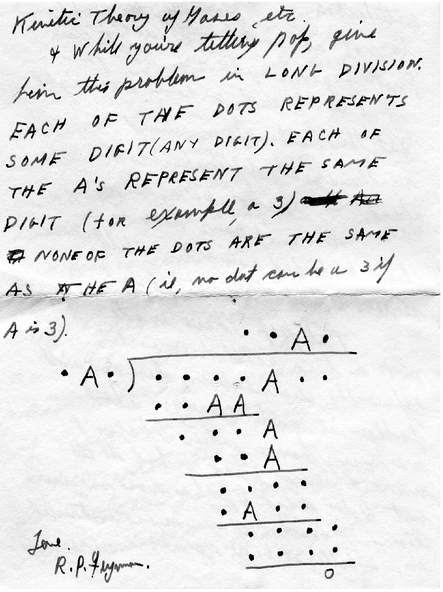 Kinetic Theory of Gases, etc.
& While you're telling Pop, give
him this problem in LONG DIVISION.
EACH OF THE DOTS REPRESENTS
SOME DIGIT (ANY DIGIT). EACH OF
THE A'S REPRESENT THE SAME
DIGIT (for example, a 3)
NONE OF THE DOTS ARE THE SAME
AS THE A (ie, no dot can be a 3 if
A is 3).
. . A .
. A . ) . . . . A . .
. . A A
. . . A
. . A
. . . .
. A . .
. . . .
. . . .
0
Love.
R. P. Feynman.